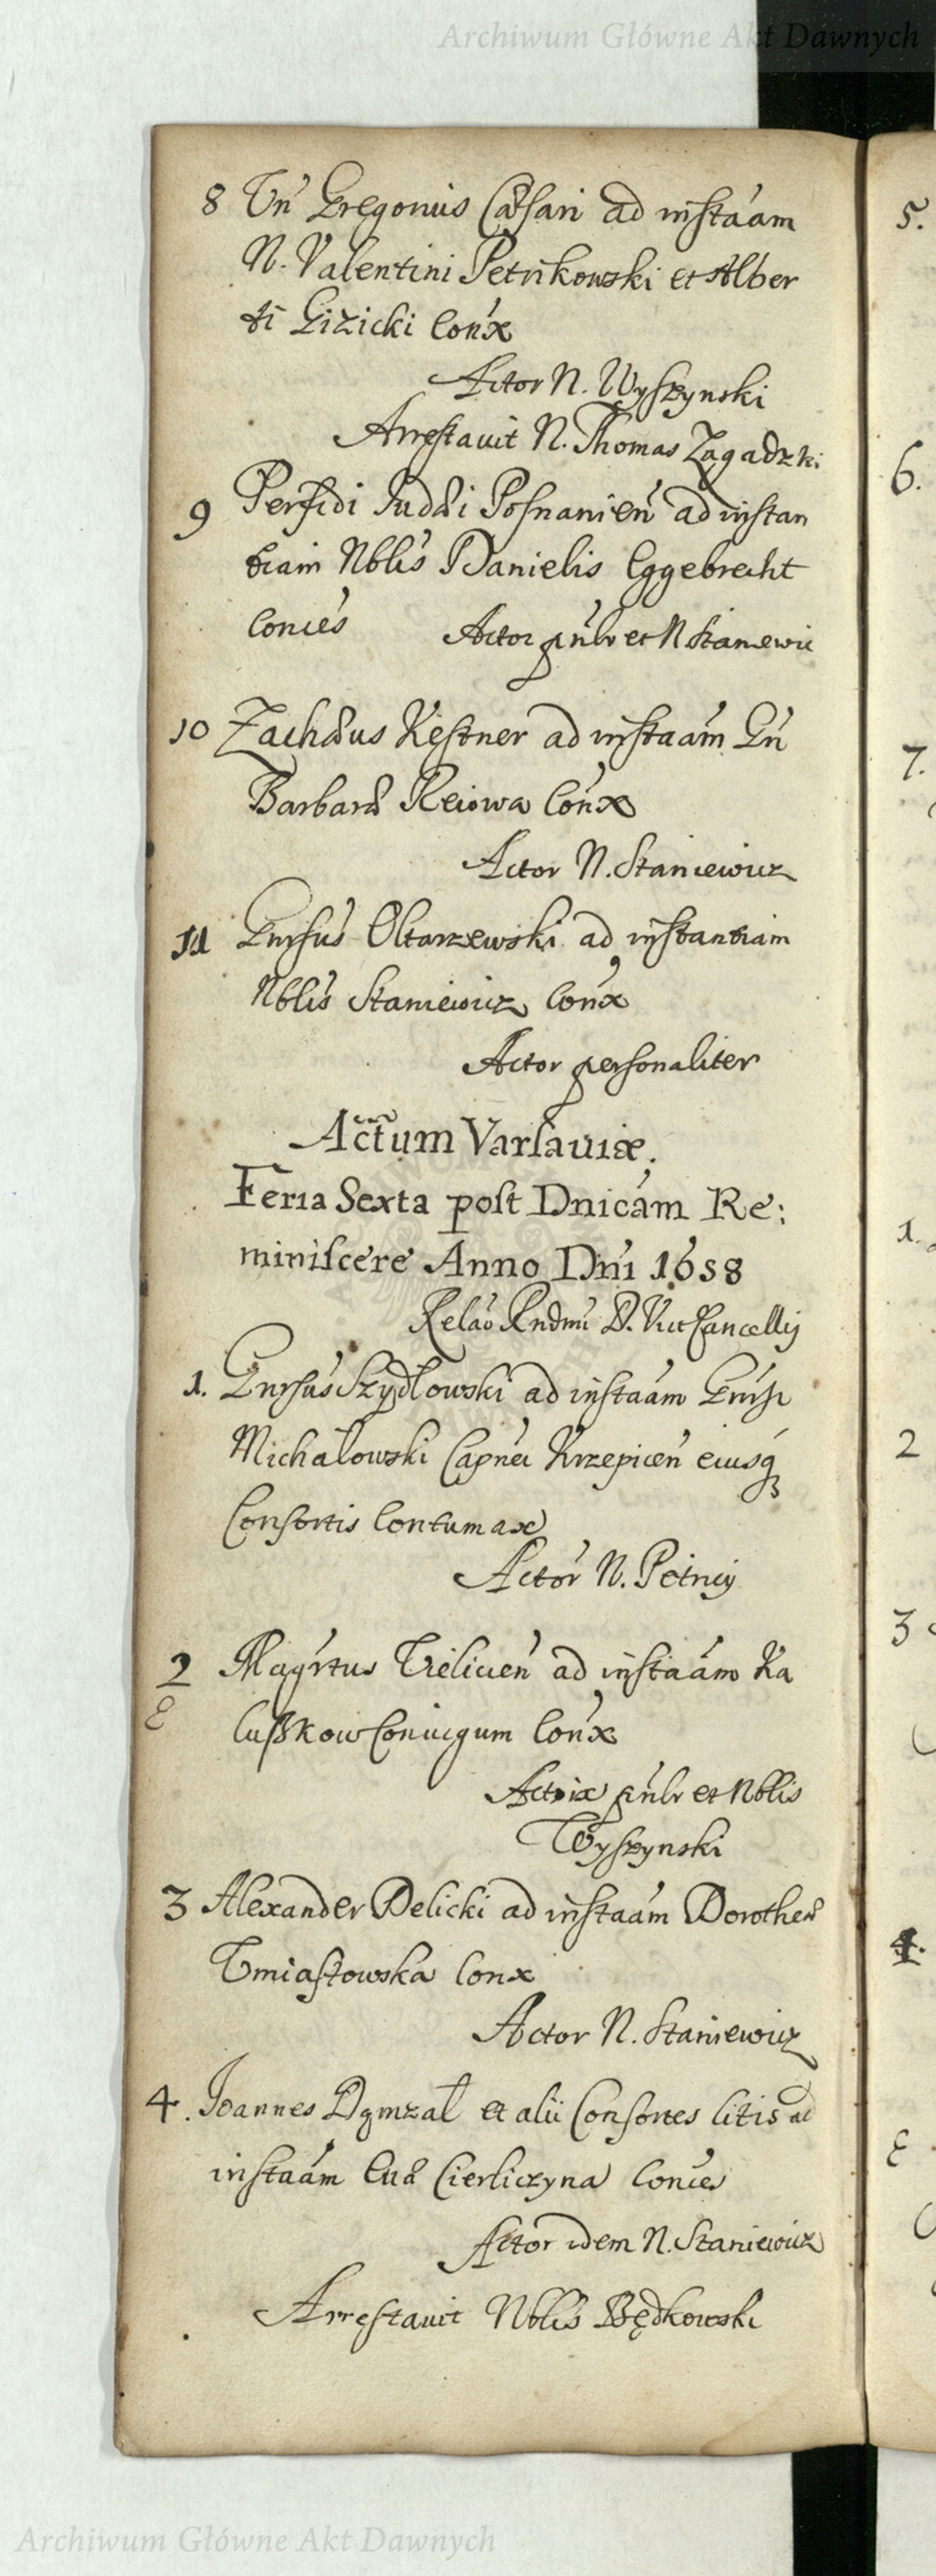 Archiwum Główne Akt Dawnych
8 Gn̄ Gregorius Cæsari ad instáam
N. Valentini Petrikowski et Alber
ti Gizicki Con̄x
Actor N. Wyszynski
Arrestauit N. Thomas Zagadzki
9 Perfidi Judæi Posnanień ad instan
tiam Nblis Danielis Eggebrecht
Conces
Actor pn̄lr et N Staniewic
10 Zachæus Kestner ad instaám Gn̄
Barbaræ Reiowa Con̄x
Actor N. Staniewicz
11 Gnrsus Oltarzewski ad instantiam
Nblis Staniewicz Con̄x
Actor personaliter
Actum Varsauiæ.
Feria Sexta post Dnicám Re:
miniscere Anno Dni 1658
Relaó Rndmi D. Vice Cancellij
1. Gnrsus Szydlowski ad instaám Gnrsi
Michalowski Capnei Krzepiceń eiusq́
Consortis Contumax
Actor N. Petricij
2 Magrtus Tielicień ad instaám Ka
luszkow Coniugum Con̄x
Actrix pn̄lr et Nblis
Wyszynski
3 Alexander Delicki ad instaám Dorotheæ
Gmiastowska Conx
Actor N. Staniewicz
4. Joannes Dymzal et alii Consortes litis ad
instaám Euæ Cierliczyna Conces
Actor idem N. Staniewicz
Arrestauit Nblis Będkowski
5.
6.
7.
1.
2
3
4.
Archiwum Główne Akt Dawnych